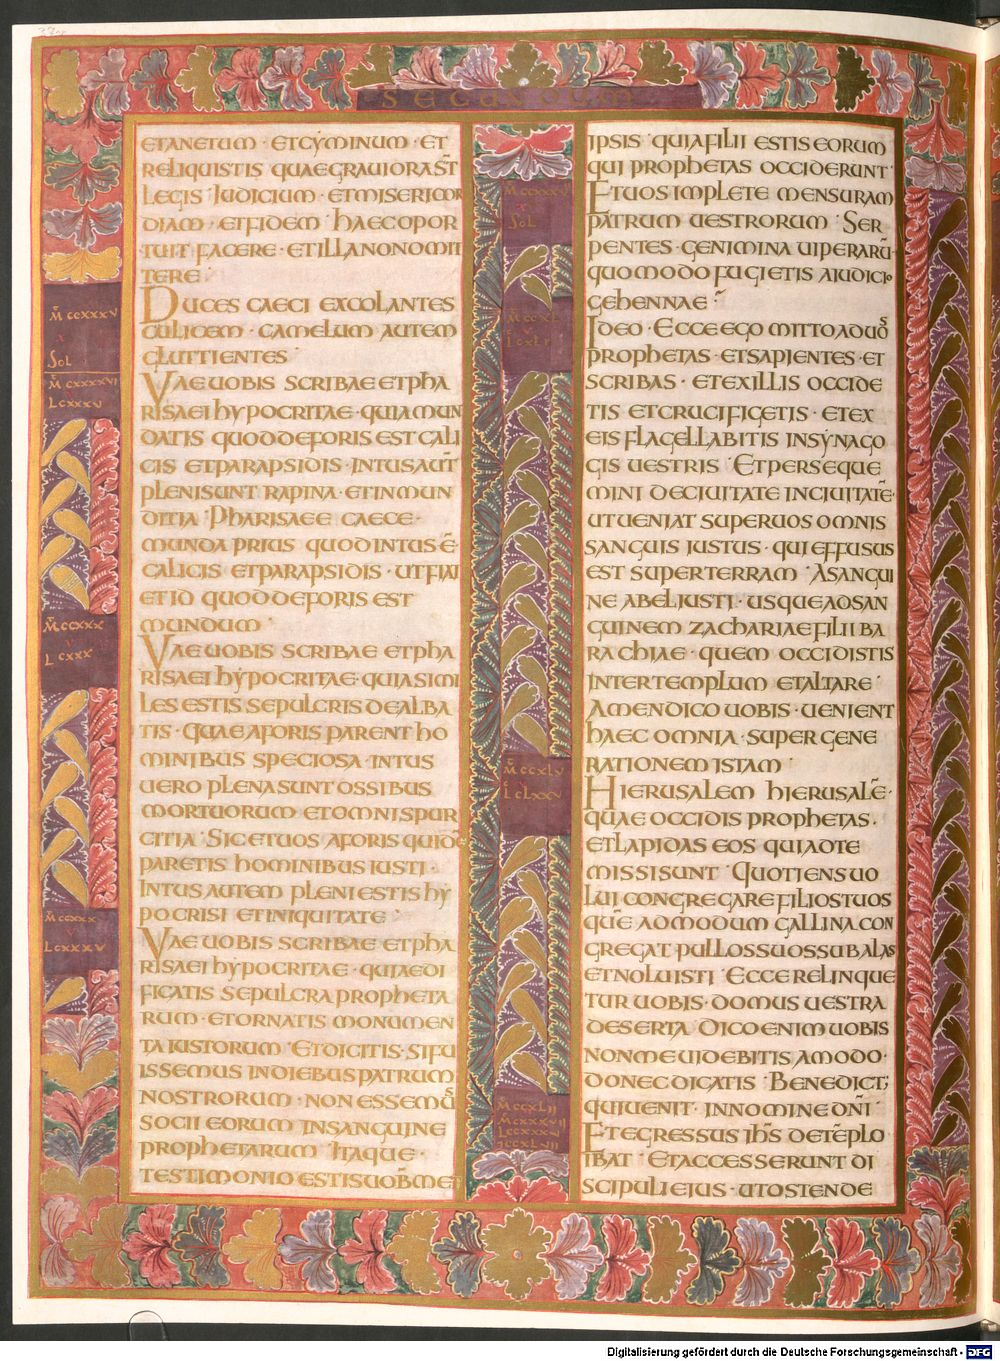 SECUNDUM
ETANETUM · ETCYMINUM · ET
RELIQUISTIS QUAEGRAUIORAS̄T
LEGIS · IUDICIUM · ETMISERICOR
DIAM · ETFIDEM · HAECOPOR
TUIT FACERE · ETILLANONOMIT
TERE ·
DUCES CAECI EXCOLANTES
CULICEM · CAMELUM AUTEM
GLUTTIENTES ·
VAEUOBIS SCRIBAE ETPHA
RISAEI HYPOCRITAE · QUIAMUN
DATIS QUODDEFORIS EST CALI
CIS ETPARAPSIDIS · INTUSAUT̄
PLENISUNT RAPINA · ETINMUN
DITIA · PHARISAEE CAECE ·
MUNDA PRIUS QUODINTUSĒ ·
CALICIS ETPARAPSIDIS · UTFIAT
ETID QUODDEFORIS EST
MUNDUM ·
VAEUOBIS SCRIBAE ETPHA
RISAEI HYPOCRITAE · QUIASIMI
LES ESTIS SEPULCRIS DEALBA
TIS · QUAEAFORIS PARENT HO
MINIBUS SPECIOSA · INTUS
UERO PLENASUNT OSSIBUS
MORTUORUM ETOMNISPUR
CITIA · SICETUOS AFORIS QUIDE̅
PARETIS HOMINIBUS IUSTI ·
INTUS AUTEM PLENI ESTIS HY
POCRISI ETINIQUITATE ·
VAEUOBIS SCRIBAE ETPHA
RISAEI HYPOCRITAE · QUIAEDI
FICATIS SEPULCRA PROPHETA
RUM · ETORNATIS MONUMEN
TA IUSTORUM · ETDICITIS · SIFU
ISSEMUS INDIEBUS PATRUM
NOSTRORUM · NON ESSEMUS
SOCII EORUM INSANGUINE
PROPHETARUM · ITAQUE ·
TESTIMONIO ESTISUOB̄MET
M̄ CCXXXV
SOL
M̄ CCXXXVI
LCXXXV
M̄ CCXXX
V
L CXXX
M̄ CCXXX
V
LCXXXV
IPSIS · QUIAFILII ESTIS EORUM
QUI PROPHETAS OCCIDERUNT ·
ETUOS IMPLETE MENSURAM
PATRUM UESTRORUM · SER
PENTES · GENIMINA UIPERARŪ ·
QUOMODO FUGIETIS AIUDICIO
GEHENNAE ·
IDEO · ECCE EGO MITTO ADUOS
PROPHETAS · ETSAPIENTES · ET
SCRIBAS · ETEXILLIS OCCIDE
TIS ETCRUCIFIGETIS · ETEX
EIS FLAGELLABITIS INSYNAGO
GIS UESTRIS · ETPERSEQUE
MINI DECIUITATE INCIUITATĒ ·
UTUENIAT SUPERUOS OMNIS
SANGUIS IUSTUS · QUI EFFUSUS
EST SUPERTERRAM · ASANGUI
NE ABELIUSTI · USQUEADSAN
GUINEM ZACHARIAE FILII BA
RACHIAE · QUEM OCCIDISTIS
INTERTEMPLUM ETALTARE ·
AMENDICO UOBIS · UENIENT
HAEC OMNIA · SUPER GENE
RATIONEM ISTAM ·
HIERUSALEM HIERUSALĒ ·
QUAE OCCIDIS PROPHETAS ·
ETLAPIDAS EOS QUIADTE
MISSISUNT · QUOTIENSUO
LUI CONGREGARE FILIOSTUOS
QUĒ ADMODUM GALLINA CON
GREGAT PULLOSSUOSSUBALAS
ETNOLUISTI · ECCERELINQUE
TUR UOBIS · DOMUS UESTRA
DESERTA · DICOENIMUOBIS
NONMEUIDEBITIS AMODO ·
DONECDICATIS · BENEDICT;
QUIUENIT · INNOMINE DN̄I ·
ETEGRESSUS IH̄S DETĒPLO
IBAT · ETACCESSERUNT DI
SCIPULI EIUS · UTOSTENDE
M̄CCXXXV
SOL
M̄ CCXLV
L CLXXV
M̄CCXLII
MCXXXVII
Digitalisierung gefördert durch die Deutsche Forschungsgemeinschaft - DFG